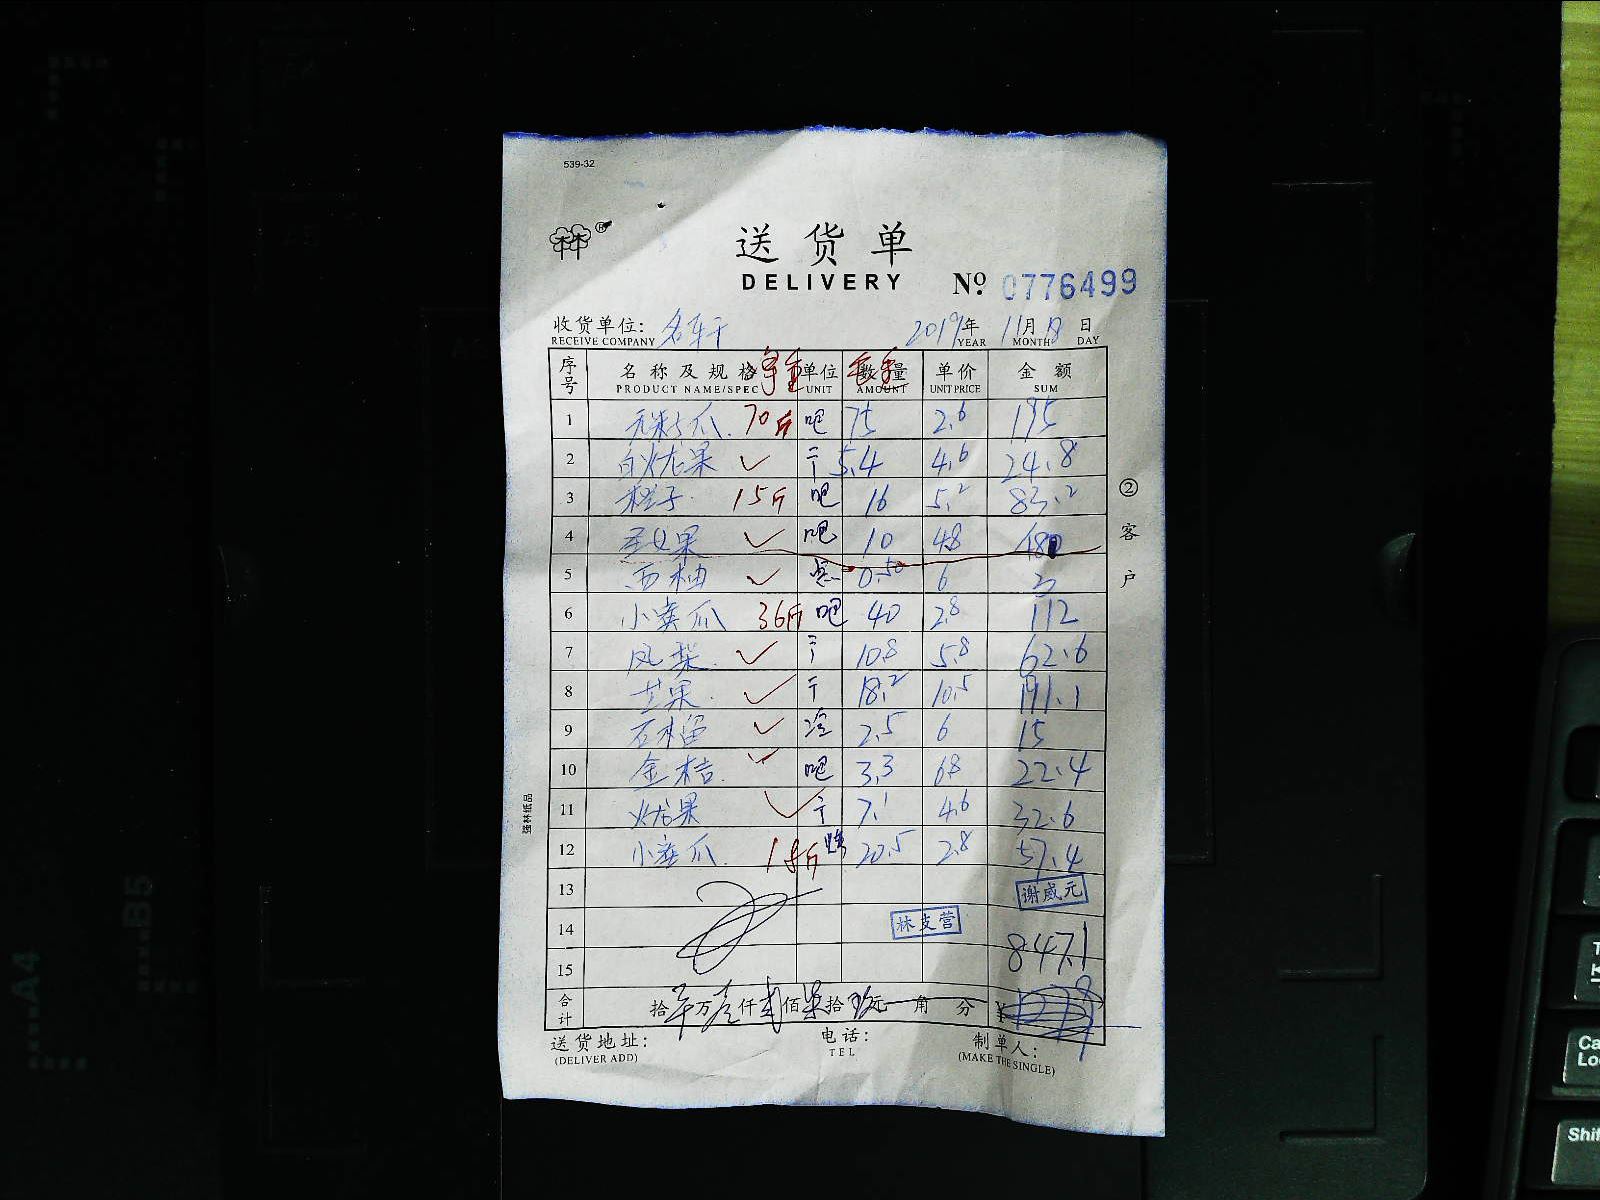 539-32
林林 ®
送货单
DELIVERY
№ 0776499
收货单位: 2019年 11月 18日
RECEIVE COMPANY YEAR MONTH DAY
序号 名称及规格 净重 单位 毛重 数量 单价 金额
PRODUCT NAME/SPEC UNIT AMOUNT UNIT PRICE SUM
1 70斤 吧 75 2.6 195
2 白火龙果 ✓ 5.4 4.6 24.8
3 橙子 15斤 吧 16 5.2 83.2
4 圣女果 ✓ 吧 10 48 480
5 西柚 ✓ 0.50 6 3
6 小黄瓜 36斤 吧 40 2.8 112
7 凤梨 ✓ 10.8 5.8 62.6
8 芒果 ✓ 18.2 10.5 191.1
9 石榴 ✓ 2.5 6 15
10 金桔 ✓ 吧 3.3 6.8 22.4
11 火龙果 ✓ 7.1 4.6 32.6
12 小黄瓜 18斤 20.5 2.8 57.4
13 谢威元
14 林支营
847.1
15
合计 拾 万 壹仟 贰佰 柒拾 玖元 角 分 ¥
送货地址:
(DELIVER ADD)
电话:
TEL
制单人:
(MAKE THE SINGLE)
②客户
强林纸品
A4
B5
Shif